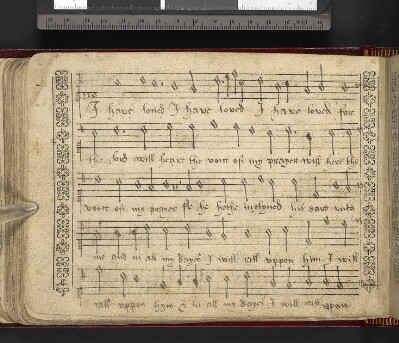 I have loved I have loved I have loved for
the lord will heare the voice of my prayer will here the
voice of my prayer he hathe inclyned his eare unto
me and in all my dayes I will call uppon him I will
call uppon hym & in all my dayes I will call uppon